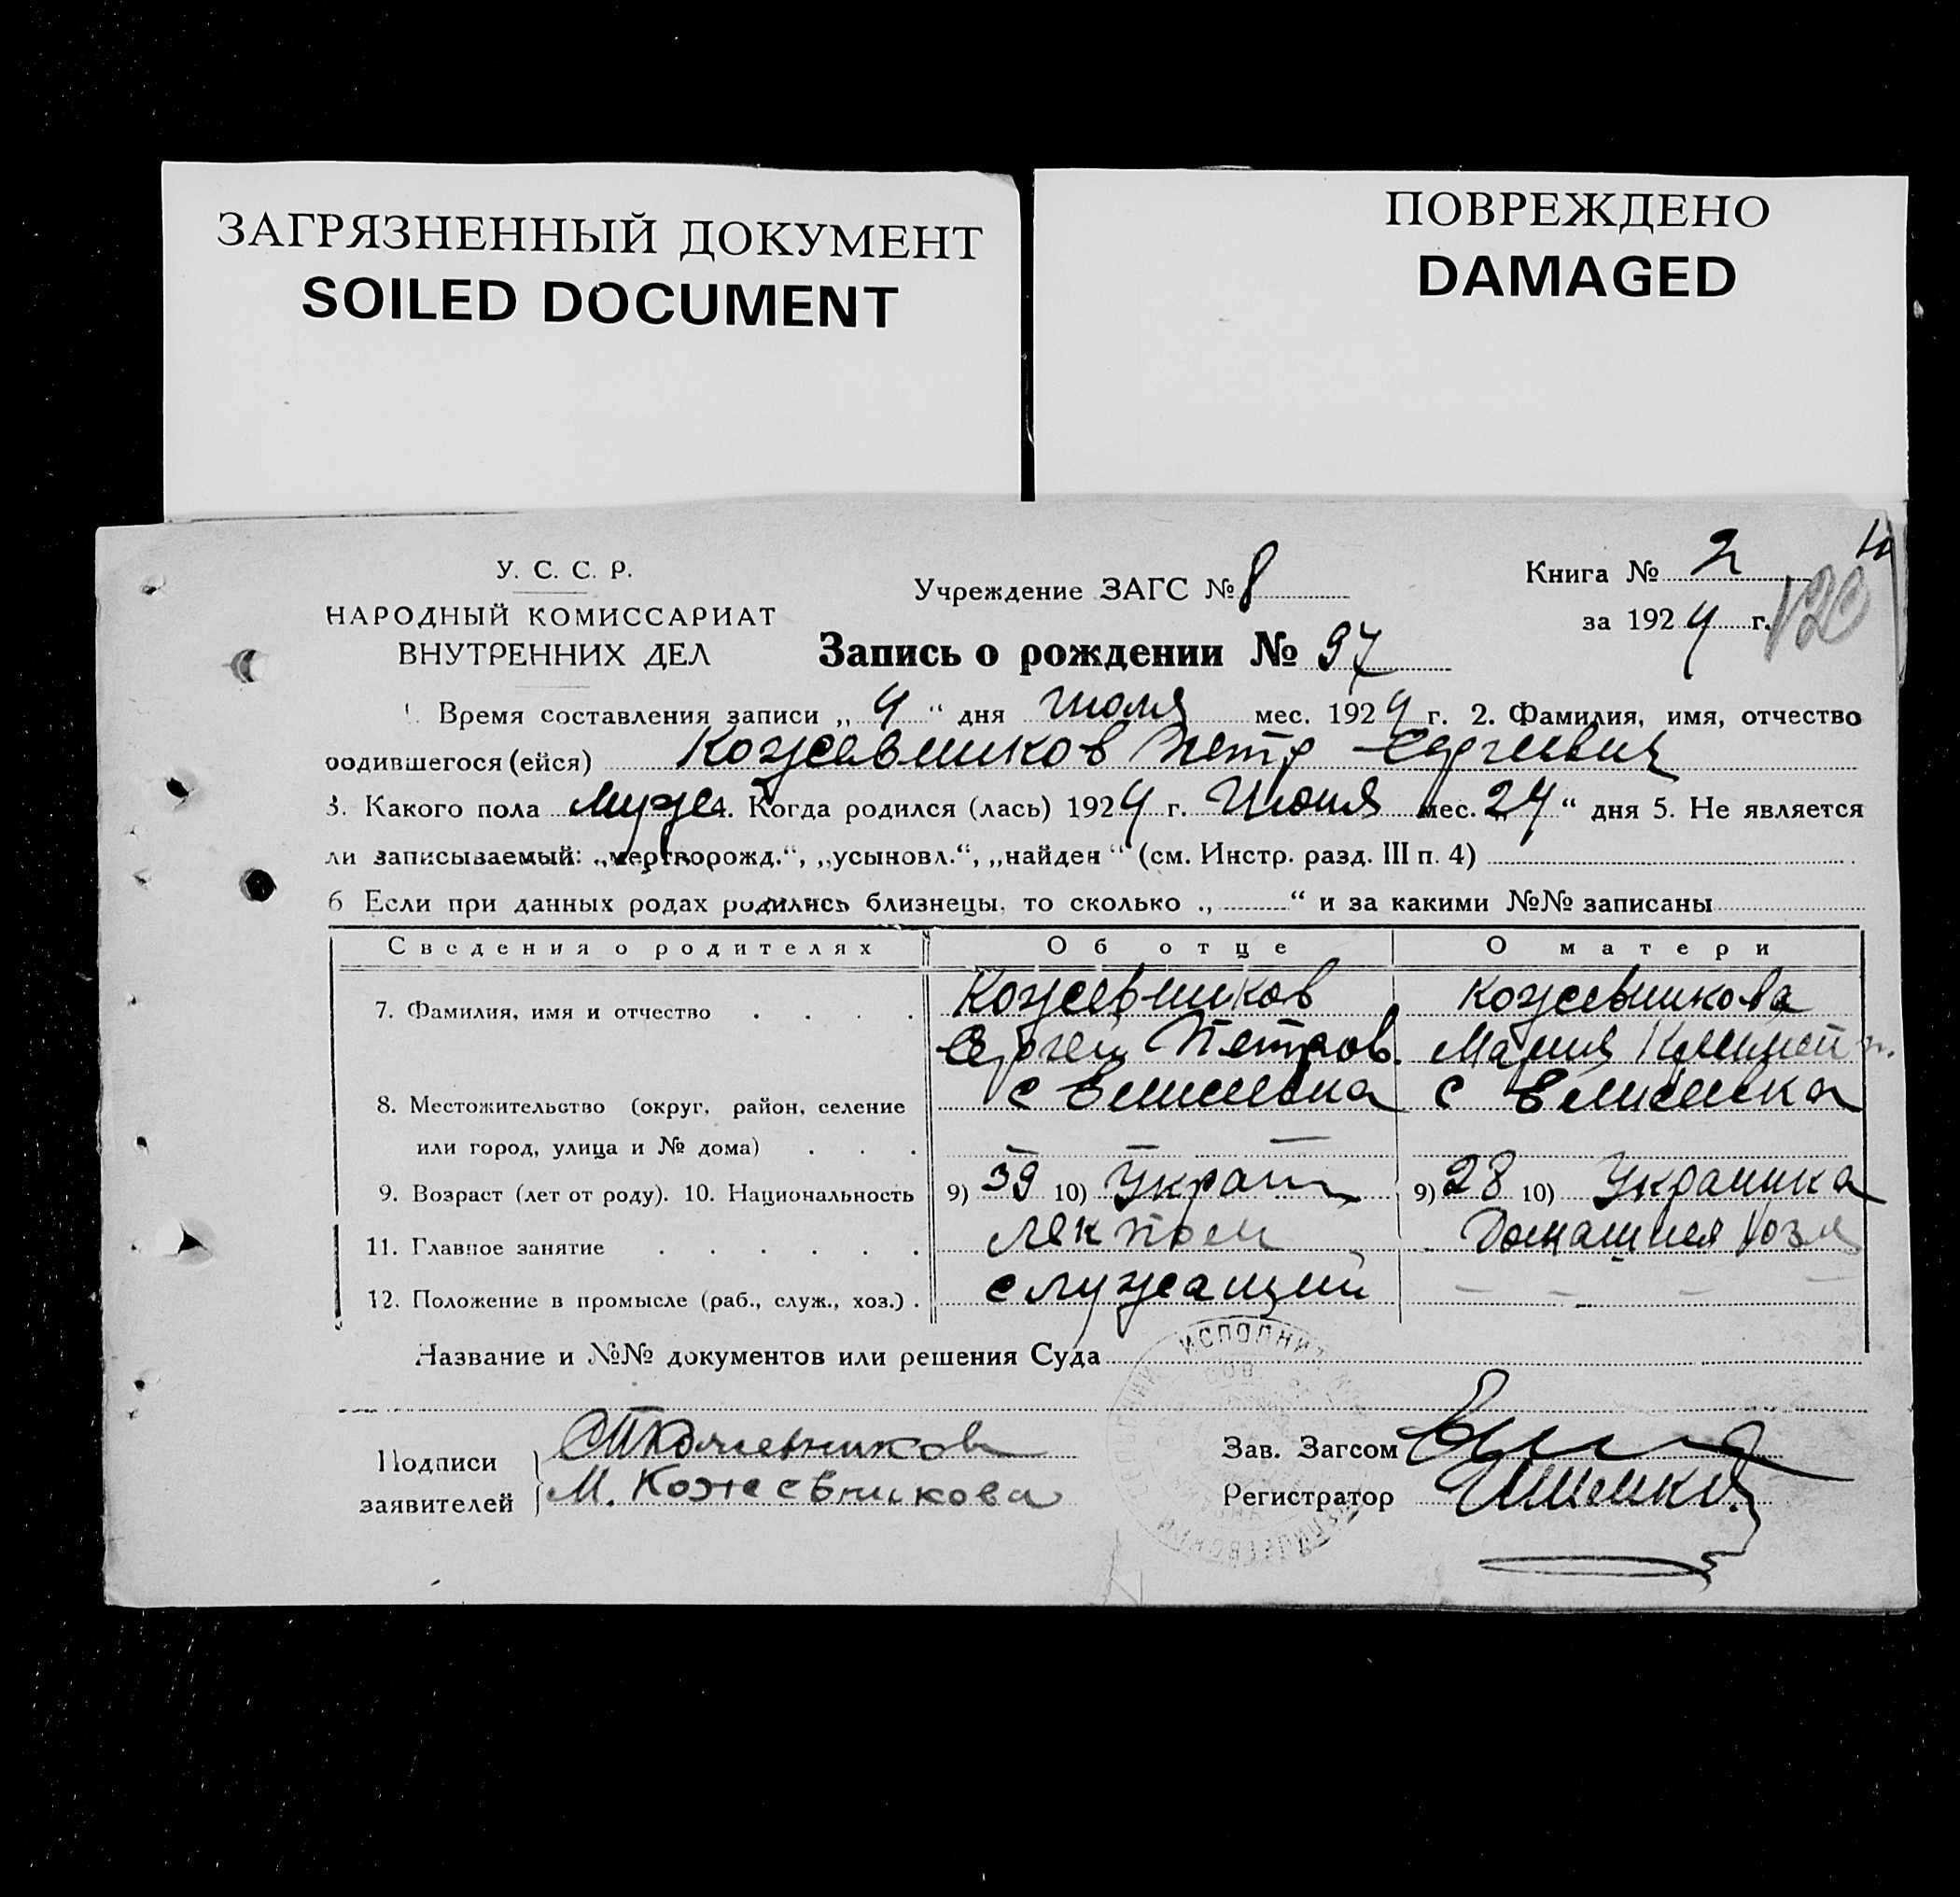 ЗАГРЯЗНЕННЫЙ ДОКУМЕНТ
SOILED DOCUMENT
ПОВРЕЖДЕНО
DAMAGED
У. С. С. Р.
НАРОДНЫЙ КОМИССАРИАТ
ВНУТРЕННИХ ДЕЛ
Учреждение ЗАГС № 8
Запись о рождении № 97
Книга № 2
за 1924 г.
1. Время составления записи „ 4 “ дня Июля мес. 1924 г. 2. Фамилия, имя, отчество
родившегося (ейся) Кожевников Петр Сергиевич
3. Какого пола муж 4. Когда родился (лась) 1924 г. Июня мес. „ 24 “ дня 5. Не является
ли записываемый: „мертворожд.“, „усыновл.“, „найден“ (см. Инстр. разд. III п. 4)
6 Если при данных родах родились близнецы, то сколько „ “ и за какими №№ записаны
Сведения о родителях Об отце О матери
7. Фамилия, имя и отчество Кожевников Кожевникова
Сергей Петров. Мария
8. Местожительство (округ, район, селение с Елисеевка с Елисеевка
или город, улица и № дома)
9. Возраст (лет от роду). 10. Национальность 9) 39 10) Украин 9) 28 10) Украинка
11. Главное занятие лекпом Домашняя хозя
12. Положение в промысле (раб., служ., хоз.) служащий
Название и №№ документов или решения Суда
Подписи
заявителей
СПКожевников
М. Кожевникова
Зав. Загсом
Регистратор